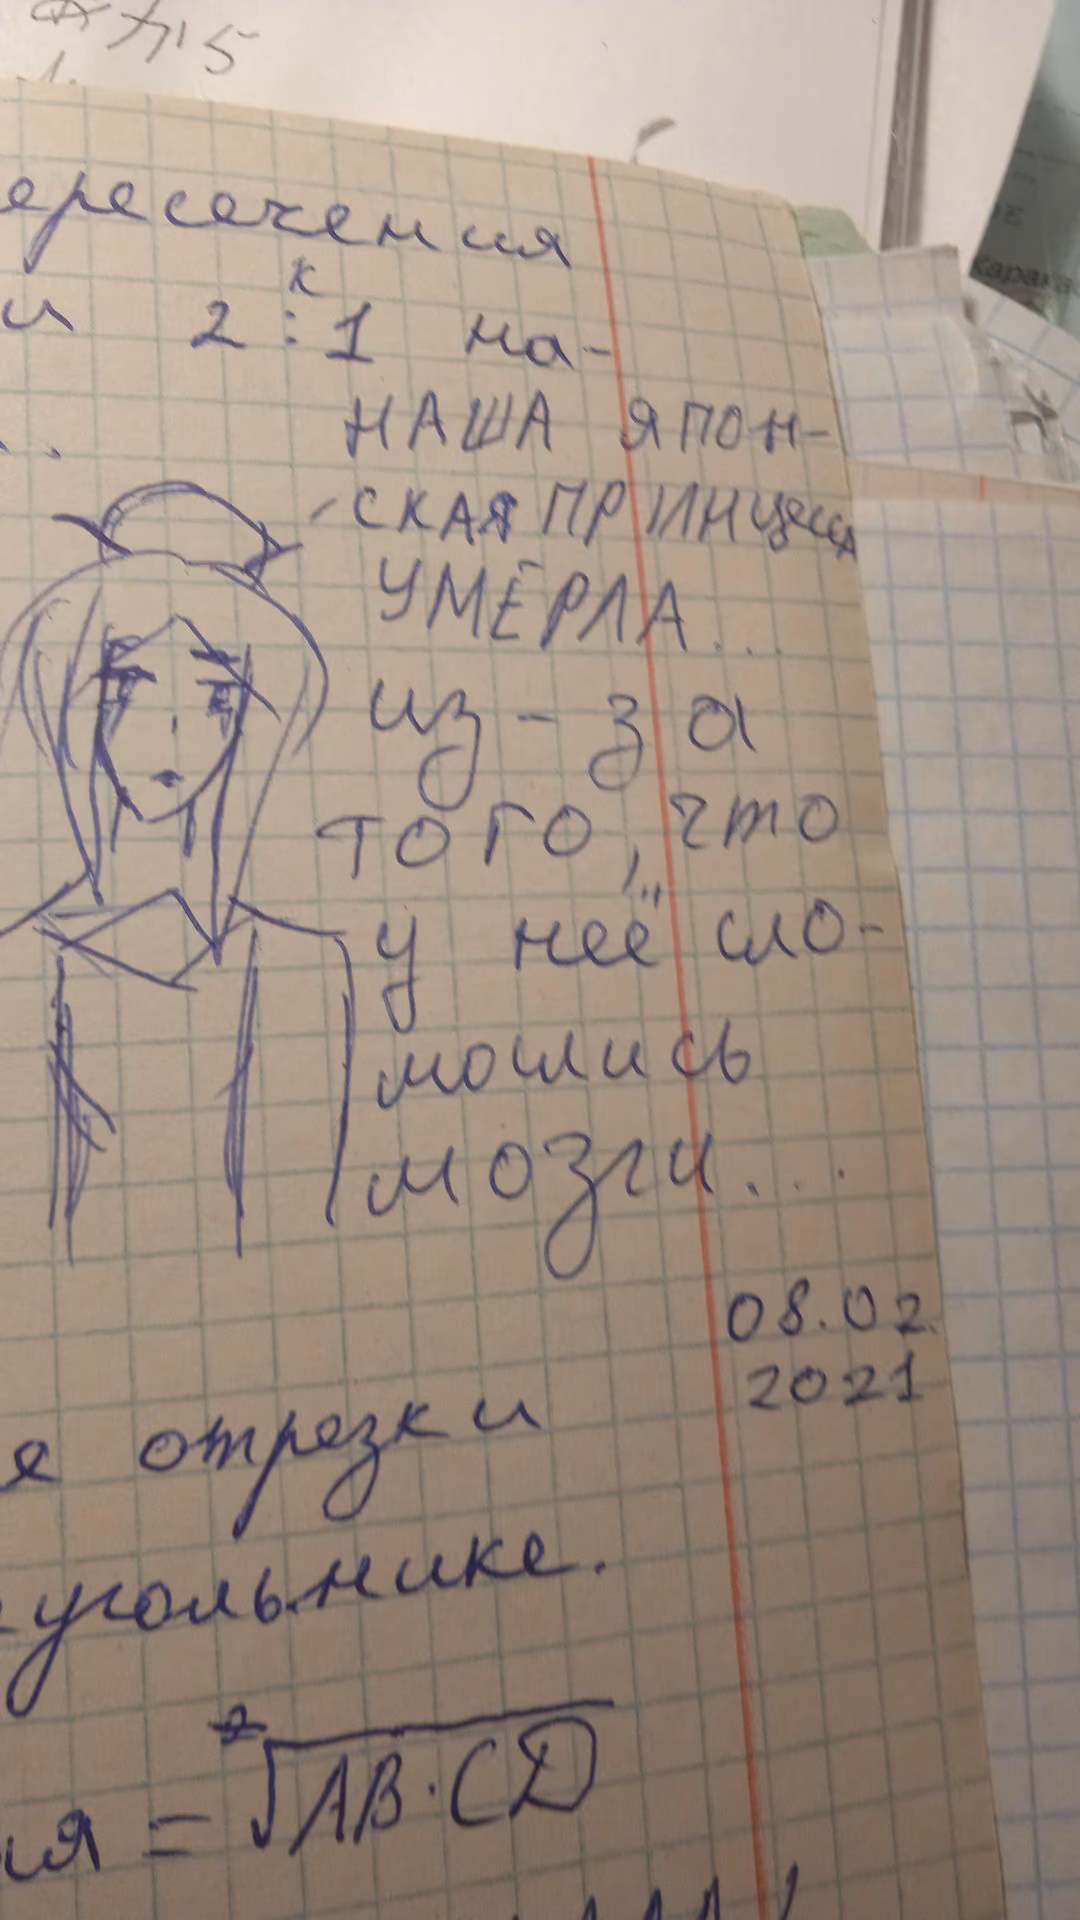 ересечения
и 2 : 1 на-
к
...
НАША ЯПОН-
СКАЯ ПРИНЦЕССА
УМЁРЛА...
из-за
того, что
у неё сло-
молись
мозги...
08.02.
2021
е отрезки
угольнике.
ия = √AB·CD
карака